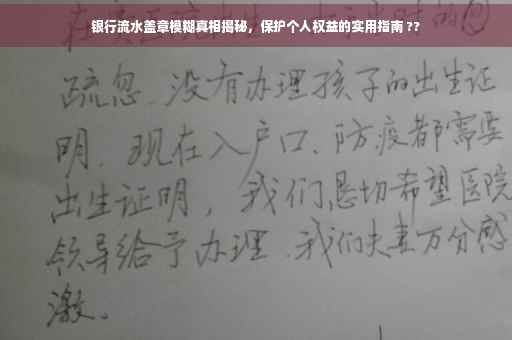 银行流水盖章模糊真相揭秘，保护个人权益的实用指南 ??
疏忽、没有办理孩子的出生证
明、现在入户口、防疫都需要
出生证明，我们恳切希望医院
领导给予办理、我们夫妻万分感
激。